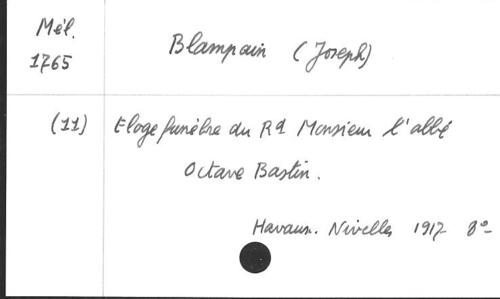 Mél.
1765
Blampain (Joseph)
(11) Eloge funèbre du Rd Monsieur l'abbé
Octave Bastin.
Havaux. Nivelles 1917 8°